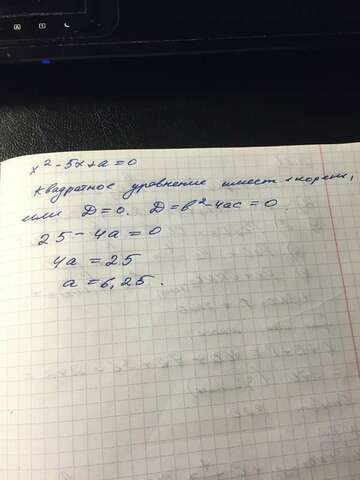 x² - 5x + a = 0
Квадратное уровнение имеет 1 корень,
или D = 0. D = b² - 4ac = 0
25 - 4a = 0
4a = 25
a = 6,25.